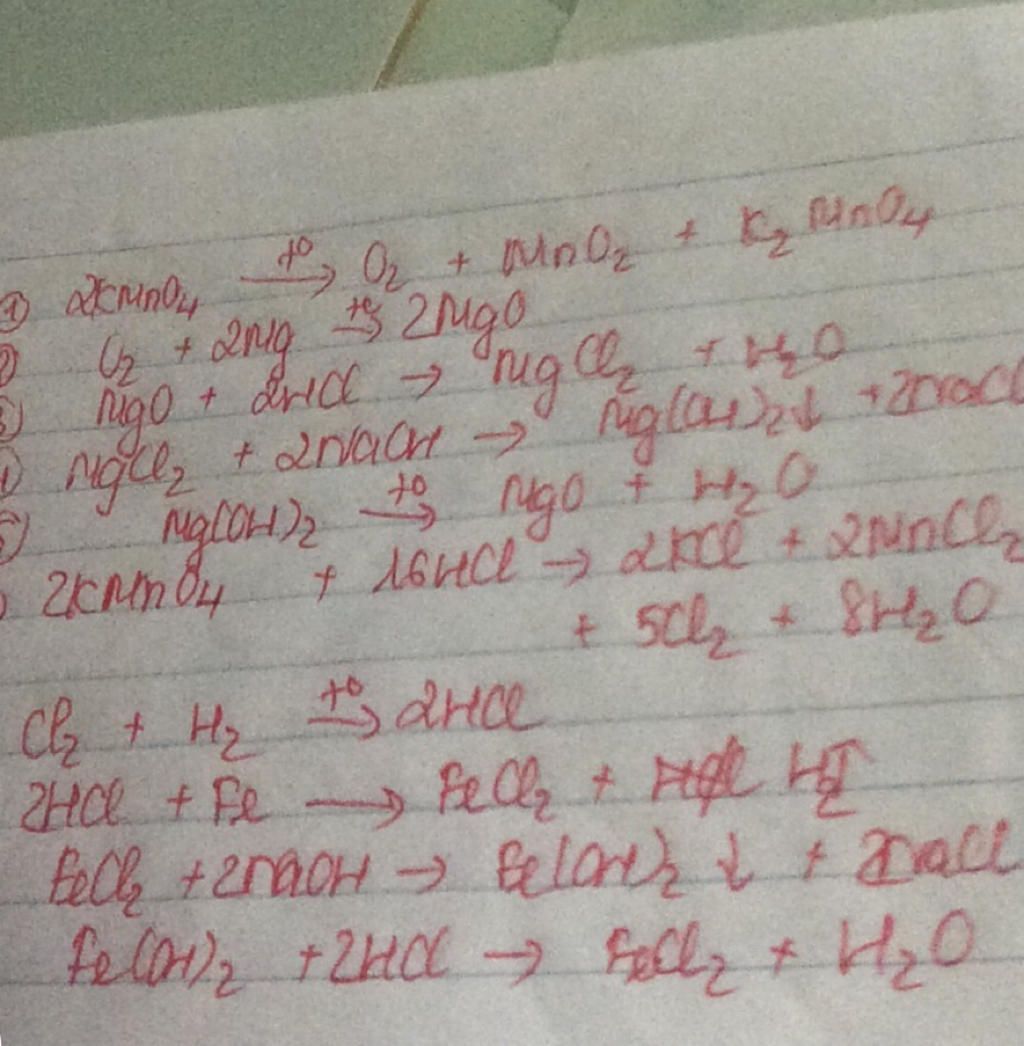 ① 2KMnO₄ →(t°) O₂ + MnO₂ + K₂MnO₄
O₂ + 2Mg →(t°) 2MgO
MgO + 2HCl → MgCl₂ + H₂O
MgCl₂ + 2NaOH → Mg(OH)₂↓ + 2NaCl
Mg(OH)₂ →(t°) MgO + H₂O
2KMnO₄ + 16HCl → 2KCl + 2MnCl₂
+ 5Cl₂ + 8H₂O
Cl₂ + H₂ →(t°) 2HCl
2HCl + Fe → FeCl₂ + H₂
FeCl₂ + 2NaOH → Fe(OH)₂ ↓ + 2NaCl
Fe(OH)₂ + 2HCl → FeCl₂ + H₂O